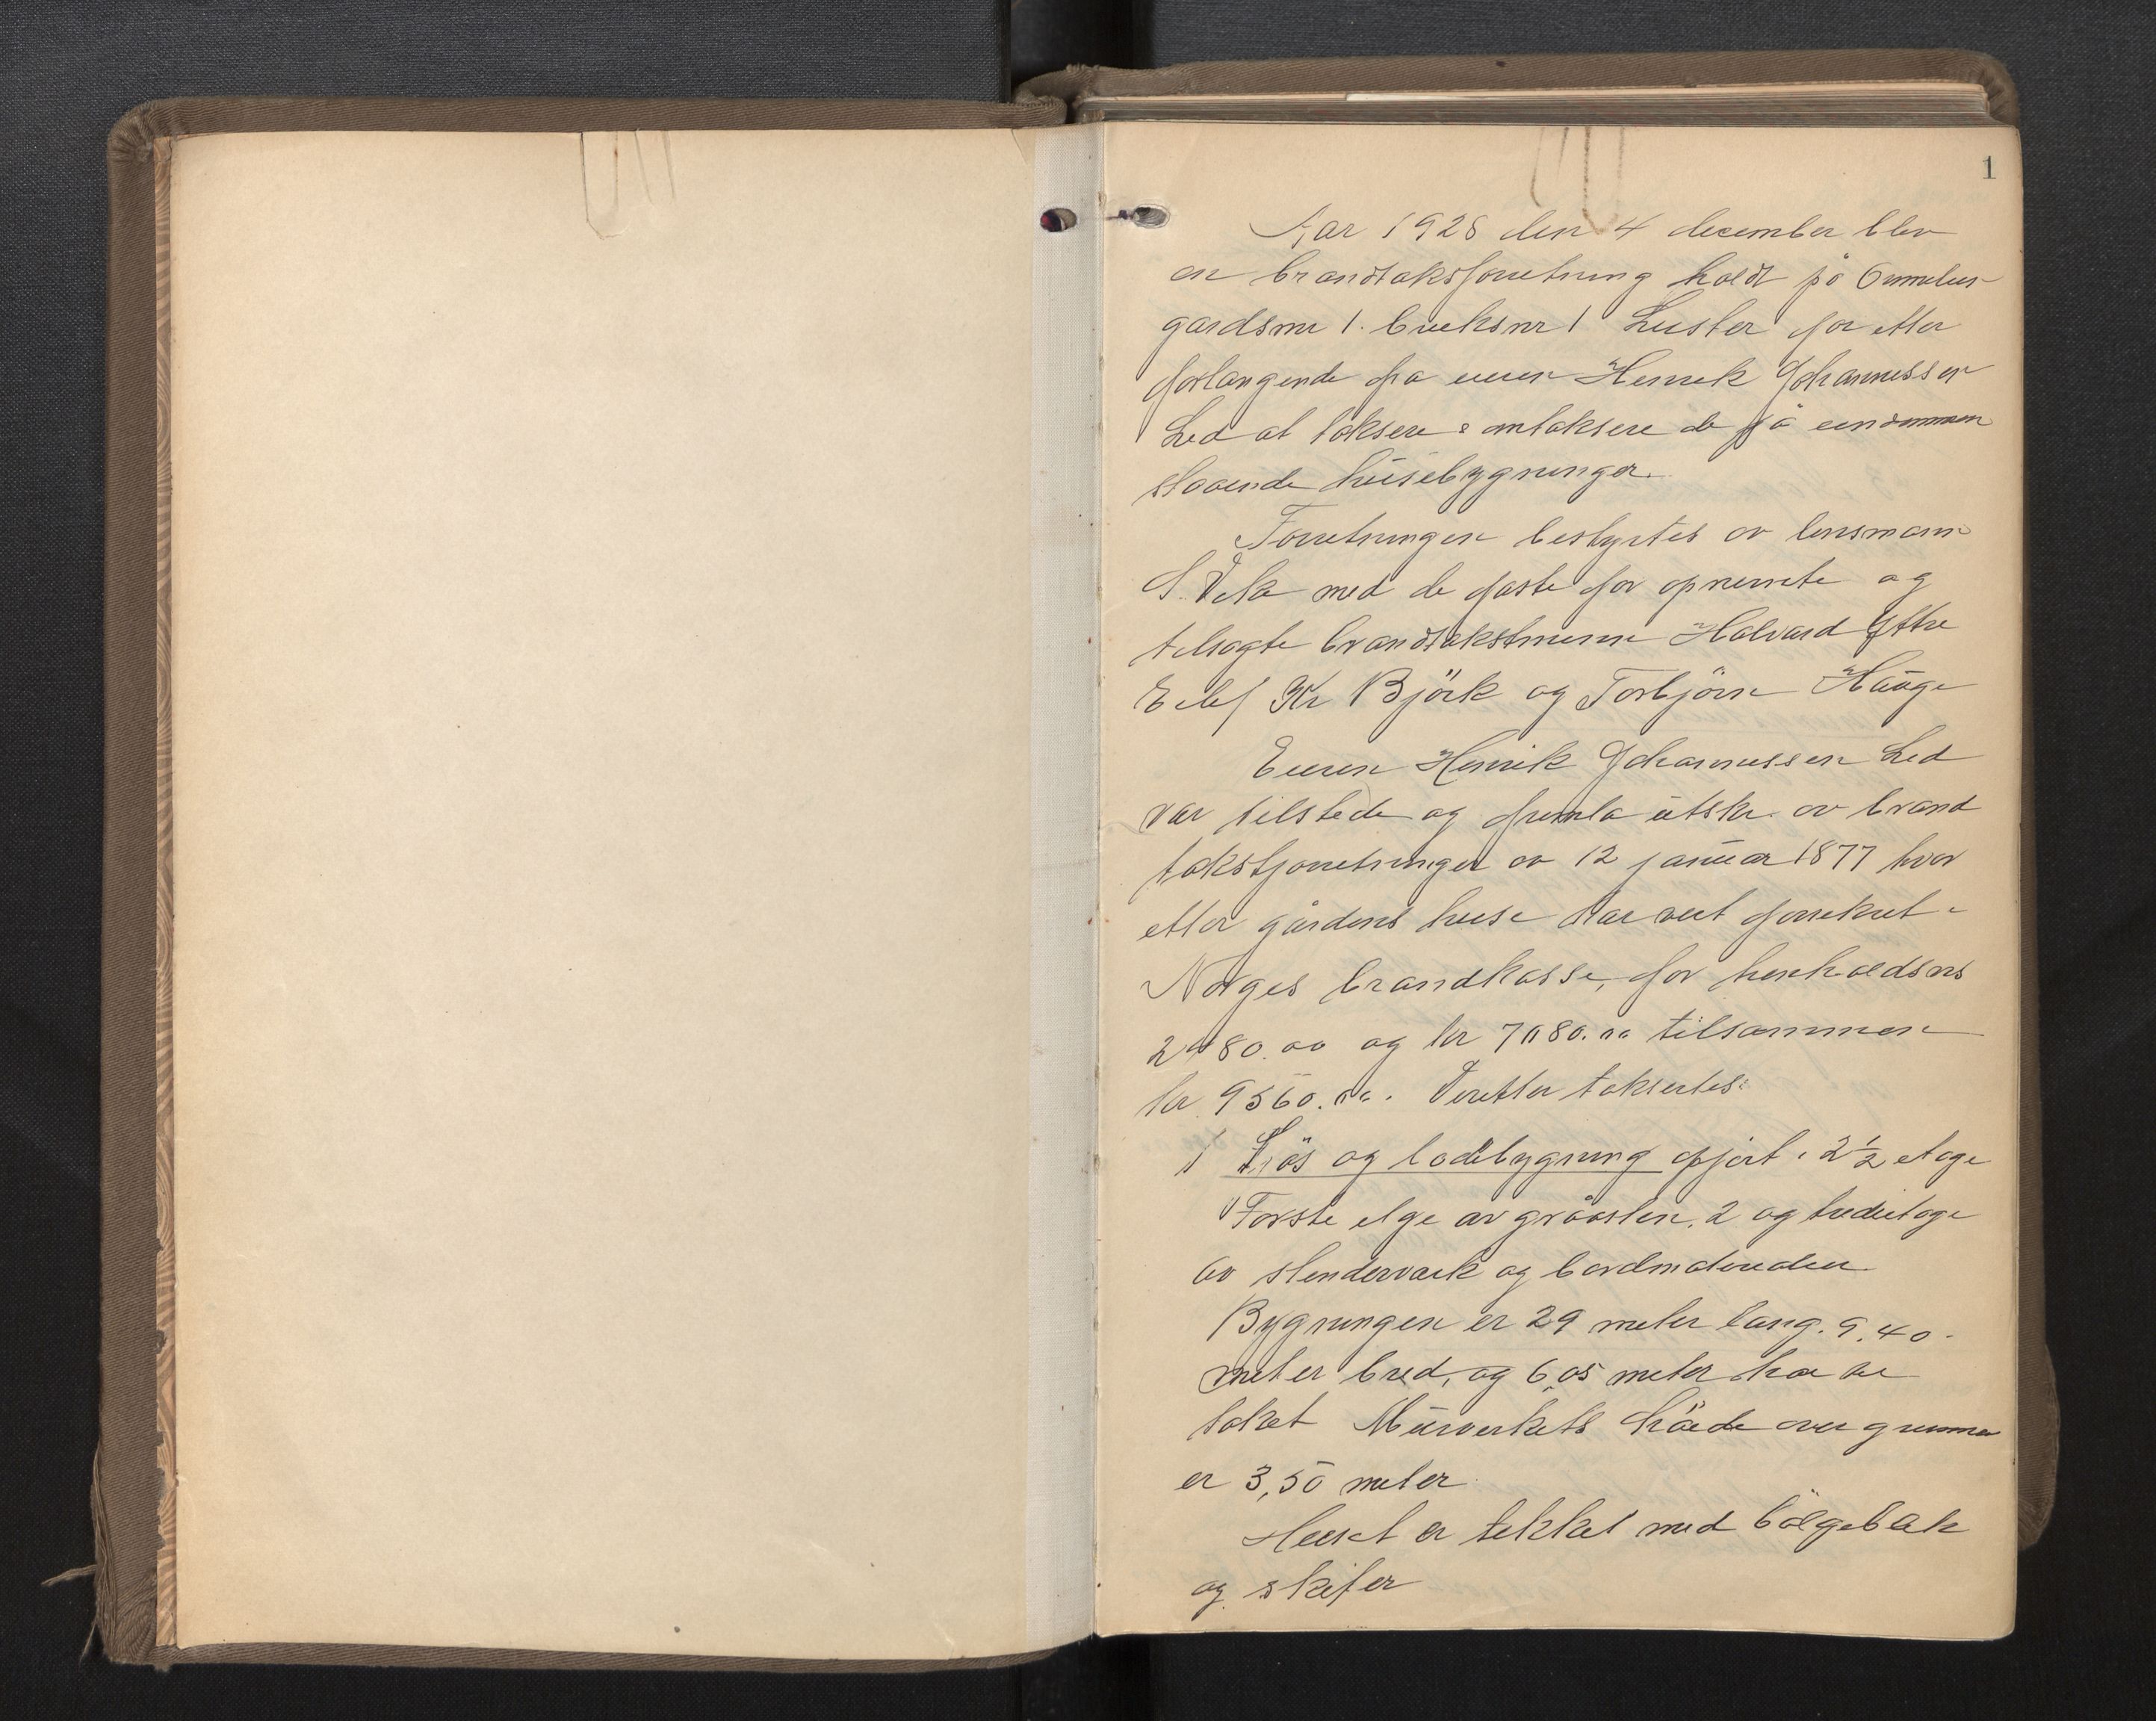 1
Aar 1928 den 4 december blev
en brandtaksforretning holdt på Ormelen
gardsnr 1. bruksnr 1 Luster for etter
forlangende fra eieren Henrik Johannessen
Lid at taksere & omtaksere de på eiendommen
staaende huisebygninger.
Forretningen bestyrtes av lensmann
med de faste for opnevnte og
tilsagte brandtakstmenn Halvard Yttre
Eilef Kr Björk og Torbjörn Haüge
Eieren Henrik Johannessen Lid
var tilstede og fremla ütskr. av brand
takstforretninger av 12 januar 1877 hvor
etter gårdens huse har vert forsikret i
Norges brandkasse, for henholdsvis
2480.00 og kr 7080.00 tilsammen
kr 9560.00. Deretter taksertes:
1 Fjös og ladebygning opfört i 2½ etage
Förste etge av gråasten. 2 og tredie etage
av stenderverk og bordmaterialer.
Bygningen er 29 meter lang. 9.40
meter bred, og 6,05 meter
taket Mürverkets höide over grunnen
er 3,50 meter
Huset er tekket med bölgeblek
og skifer